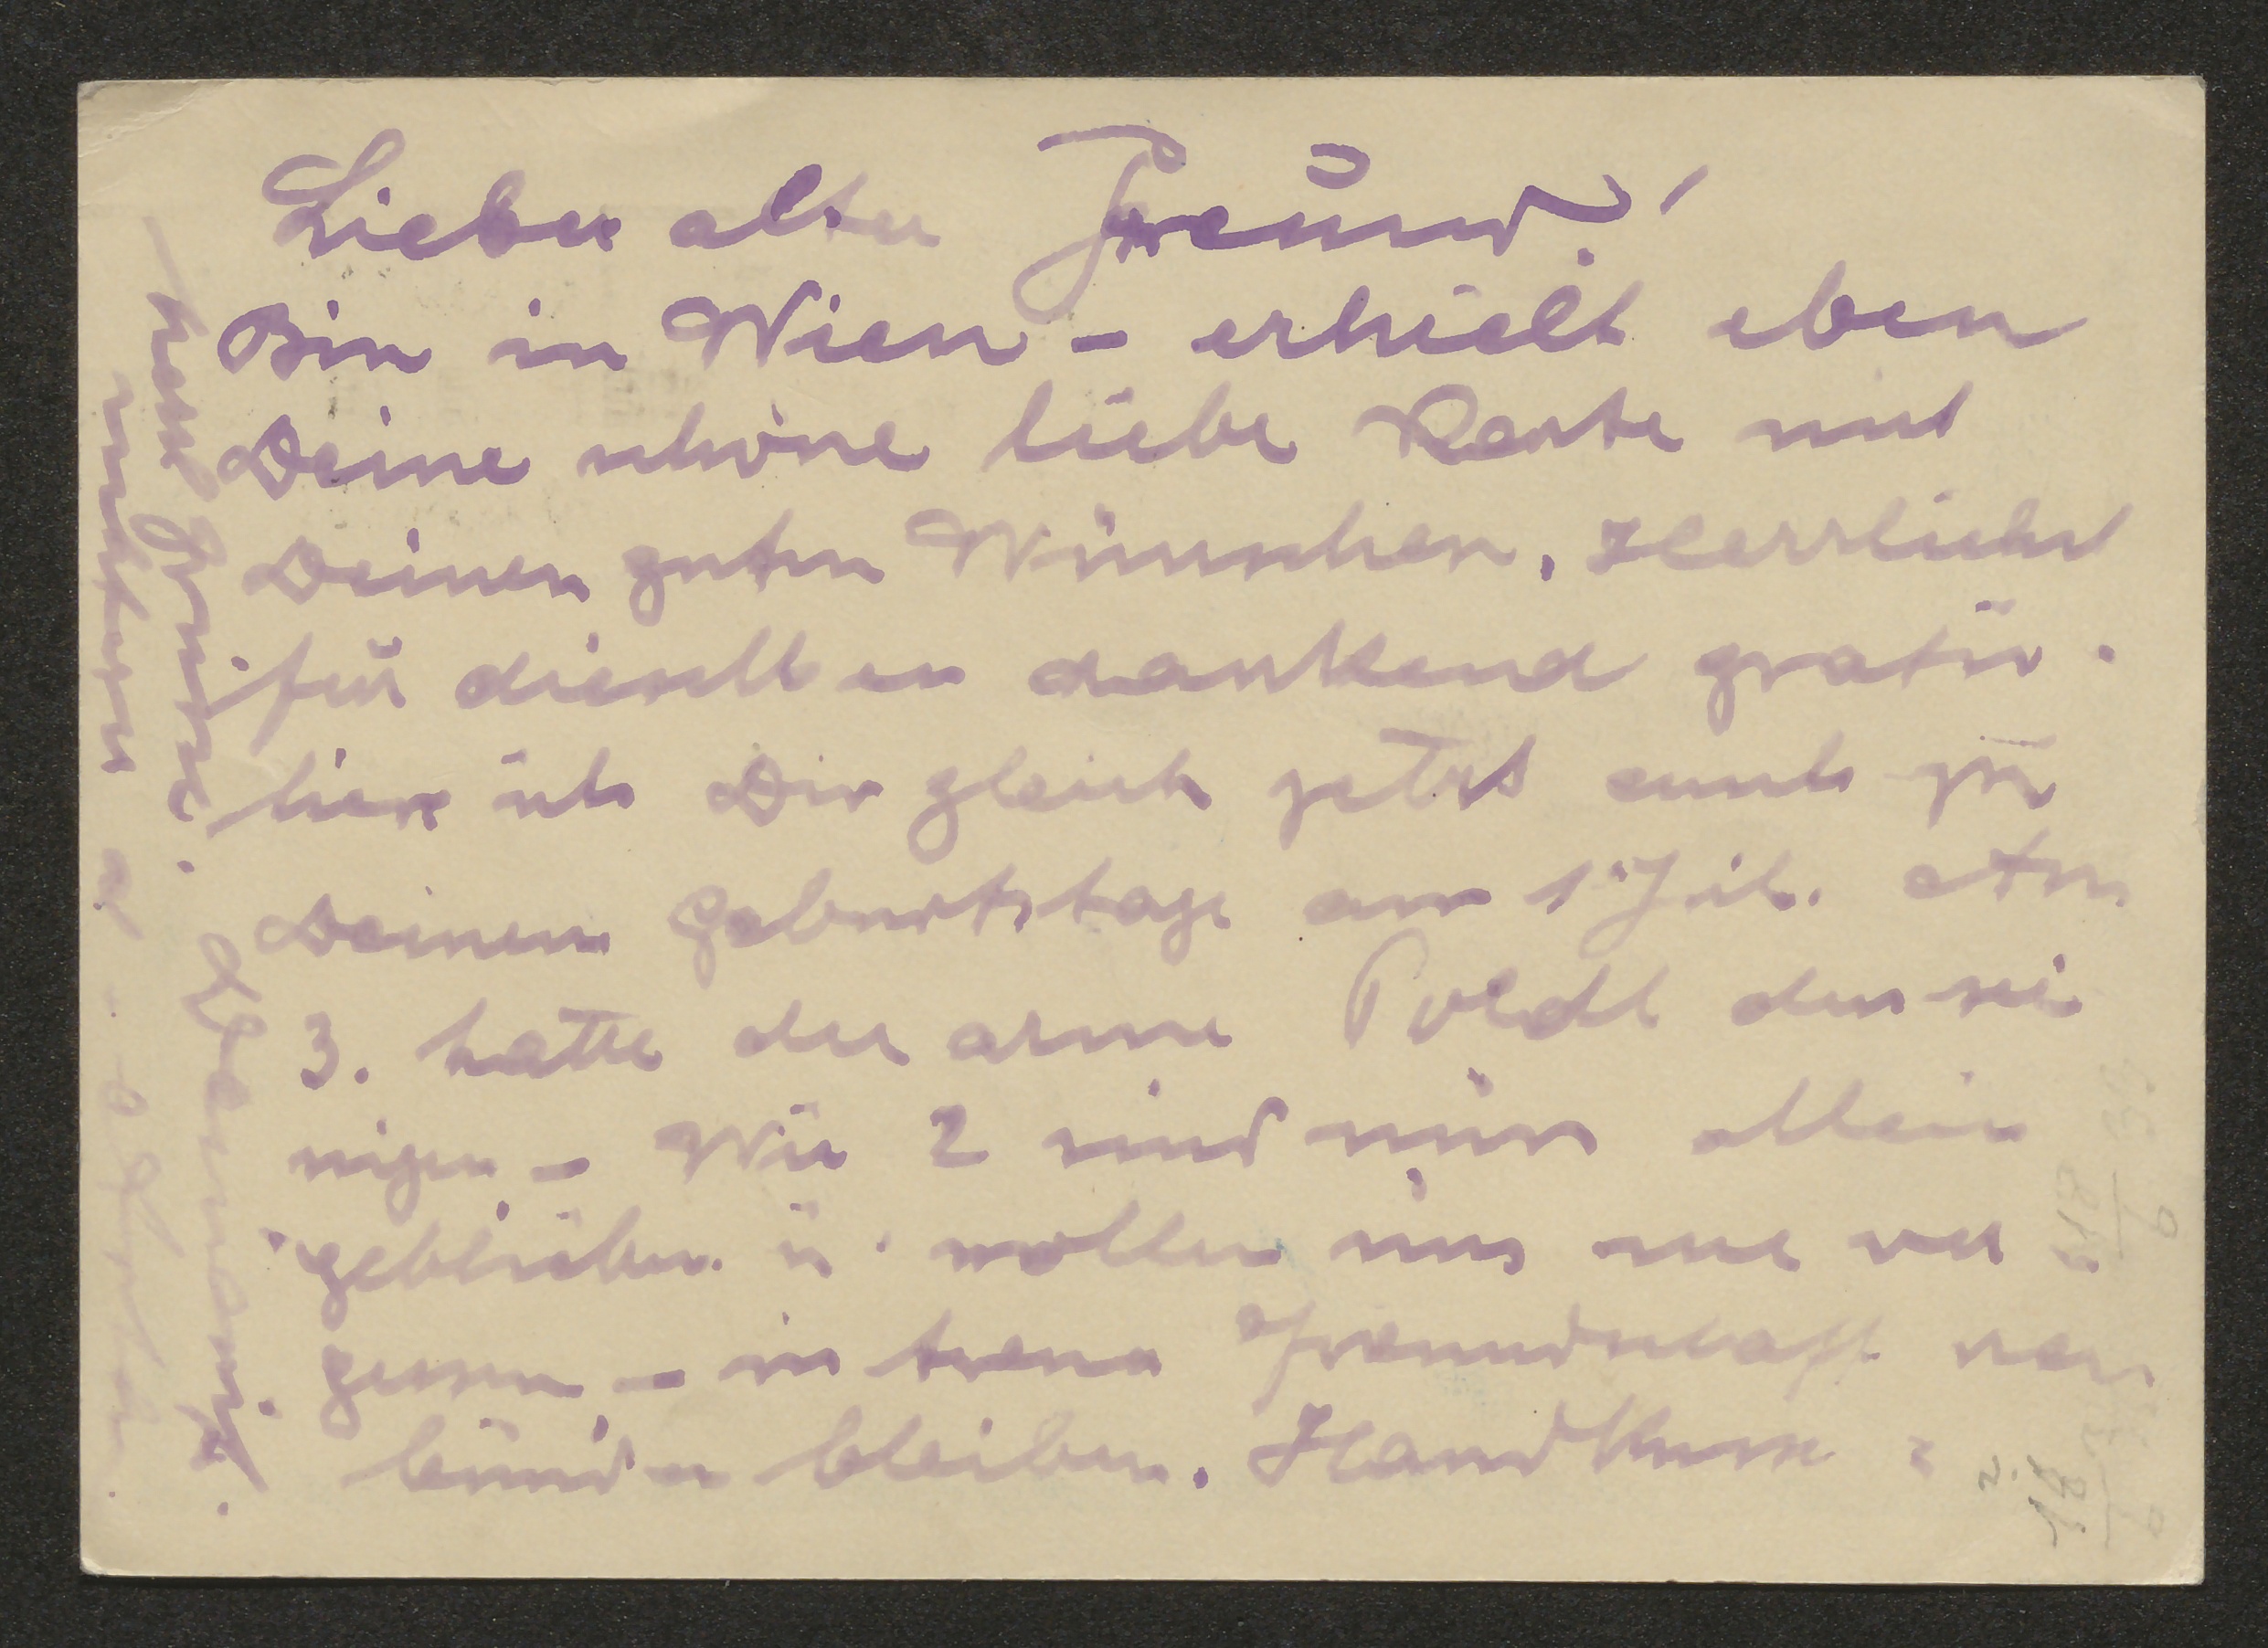 Lieber alter Freund!
Bin in Wien – erhielt eben
Deine schöne liebe Karte mit
Deinen guten Wünschen. Herrlichst
für dieselben dankend gratu-
liere ich Dir gleich jetzt auch zu
Deinem Geburtstage am 1. Juli. Am
3. hatte der arme Poldl den sei
nigen – Wir 2 sind nun allein
geblieben u. wollen uns nie ver
gessen – in treuer Freundschaft ver
bunden bleiben. Handkuss